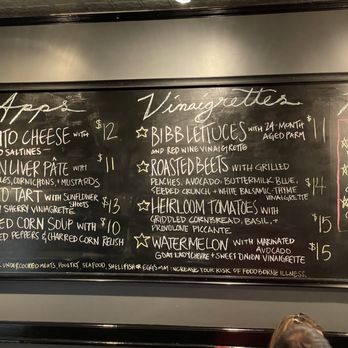 Apps
TO CHEESE WITH $12
SALTINES
LIVER PÂTE WITH $11
CORNICHONS, + MUSTARDS
TO TART WITH SUNFLOWER SHOOTS $13
SHERRY VINAIGRETTE
ED CORN SOUP WITH $10
ED PEPPERS & CHARRED CORN RELISH
Vinaigrettes
☆ BIBB LETTUCES WITH 24-MONTH AGED PARM $11
AND RED WINE VINAIGRETTE
☆ ROASTED BEETS WITH GRILLED
PEACHES, AVOCADO, BUTTERMILK BLUE,
SEEDED CRUNCH + WHITE BALSAMIC-THYME VINAIGRETTE $14
☆ HEIRLOOM TOMATOES WITH
GRIDDLED CORNBREAD, BASIL, +
PROVOLONE PICCANTE $15
☆ WATERMELON WITH MARINATED AVOCADO $15
GOAT LADY CHÈVRE + SWEET ONION VINAIGRETTE
UNDERCOOKED MEATS, POULTRY, SEAFOOD, SHELLFISH OR EGGS MAY INCREASE YOUR RISK OF FOODBORNE ILLNESS.